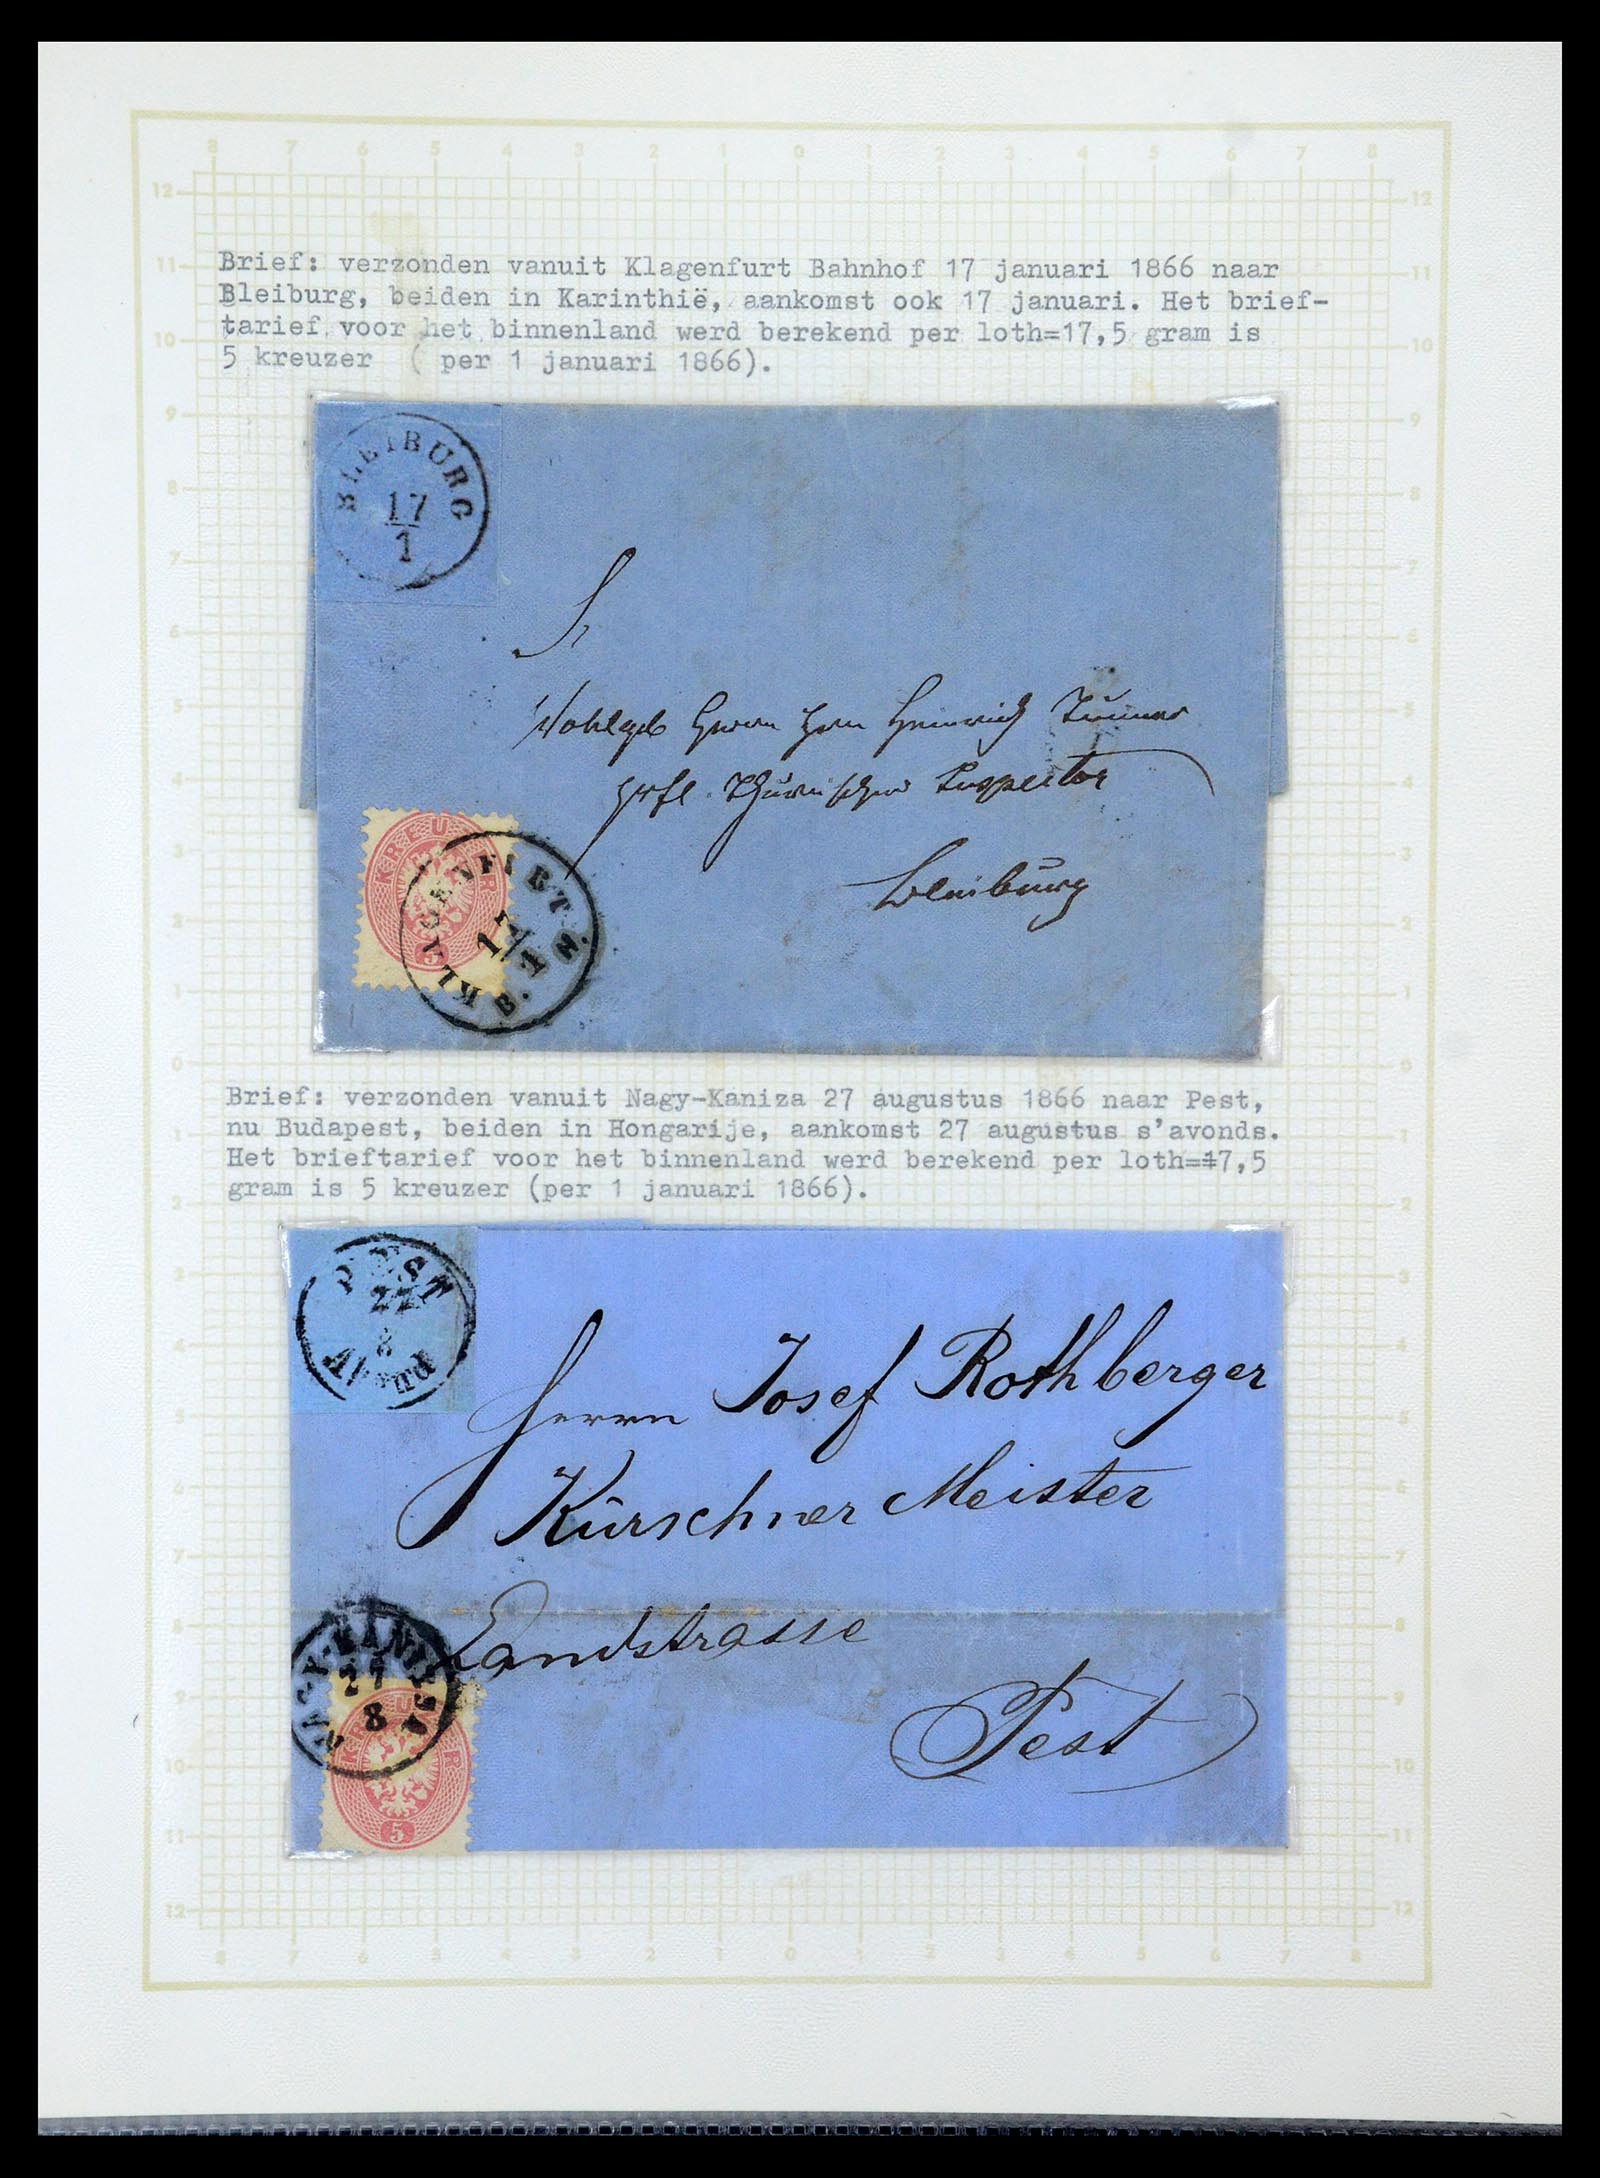 Brief: verzonden vanuit Klagenfurt Bahnhof 17 januari 1866 naar
Bleiburg, beiden in Karinthië, aankomst ook 17 januari. Het brief-
tarief voor het binnenland werd berekend per loth=17,5 gram is
5 kreuzer ( per 1 januari 1866).
BLEIBURG
17
1
Wohlgeb Herrn Hrn Heinrich
Inspector
Bleiburg
KREUZER
5
KLAGENFURT
17/1
B. H.
Brief: verzonden vanuit Nagy-Kaniza 27 augustus 1866 naar Pest,
nu Budapest, beiden in Hongarije, aankomst 27 augustus s'avonds.
Het brieftarief voor het binnenland werd berekend per loth=17,5
gram is 5 kreuzer (per 1 januari 1866).
PEST
27
8
Abend
Herrn Josef Rothberger
Kürschner Meister
Landstrasse
Pest
NAGY-KANIZSA
27
8
KREUZER
5